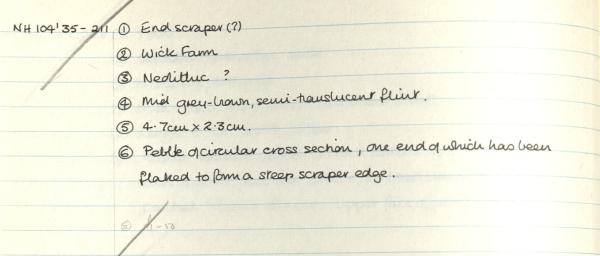 NH 104'35-211 ① End scraper (?)
② Wick Farm
③ Neolithic ?
④ Mid grey-brown, semi-translucent flint.
⑤ 4.7cm x 2.3cm.
⑥ Pebble of circular cross section, one end of which has been
flaked to form a steep scraper edge.